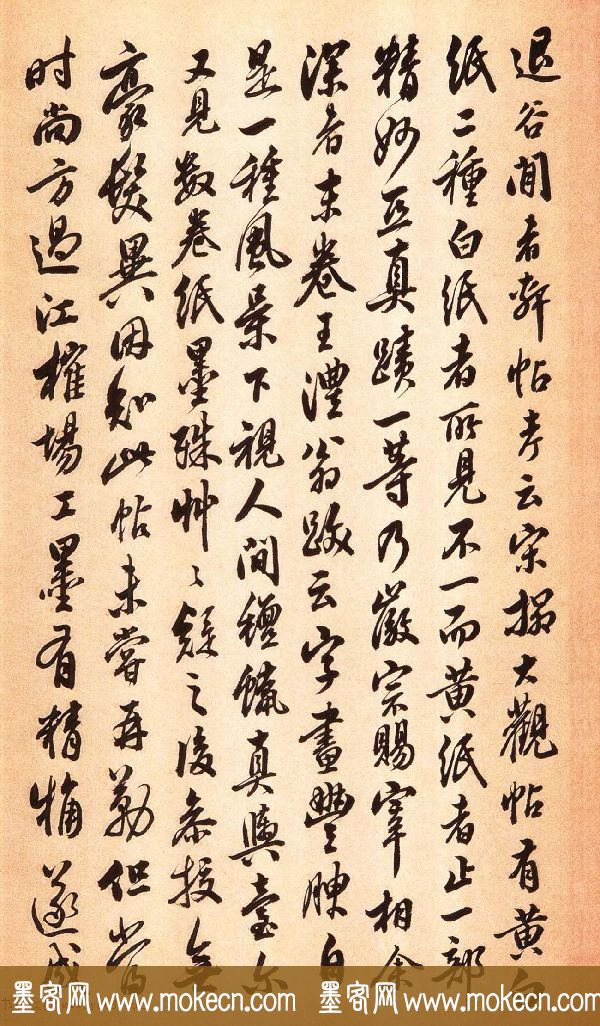 退谷閒者軒帖考云宋搨大觀帖有黄白
紙二種白紙者所見不一而黄紙者止一部
精妙亞真蹟一等乃徽宗賜宰相余
深者末卷王澧翁跋云字畫豐腴自
是一種風景下視人間穜䗶真輿臺尔
又見數卷紙墨殊艸〻疑之後叅挍無
豪髮異因知此帖未嘗再勒但當
时尚方過江榷場工墨有精觕遂成
墨客网 www.mokecn.com 墨客网 www.mokecn.com